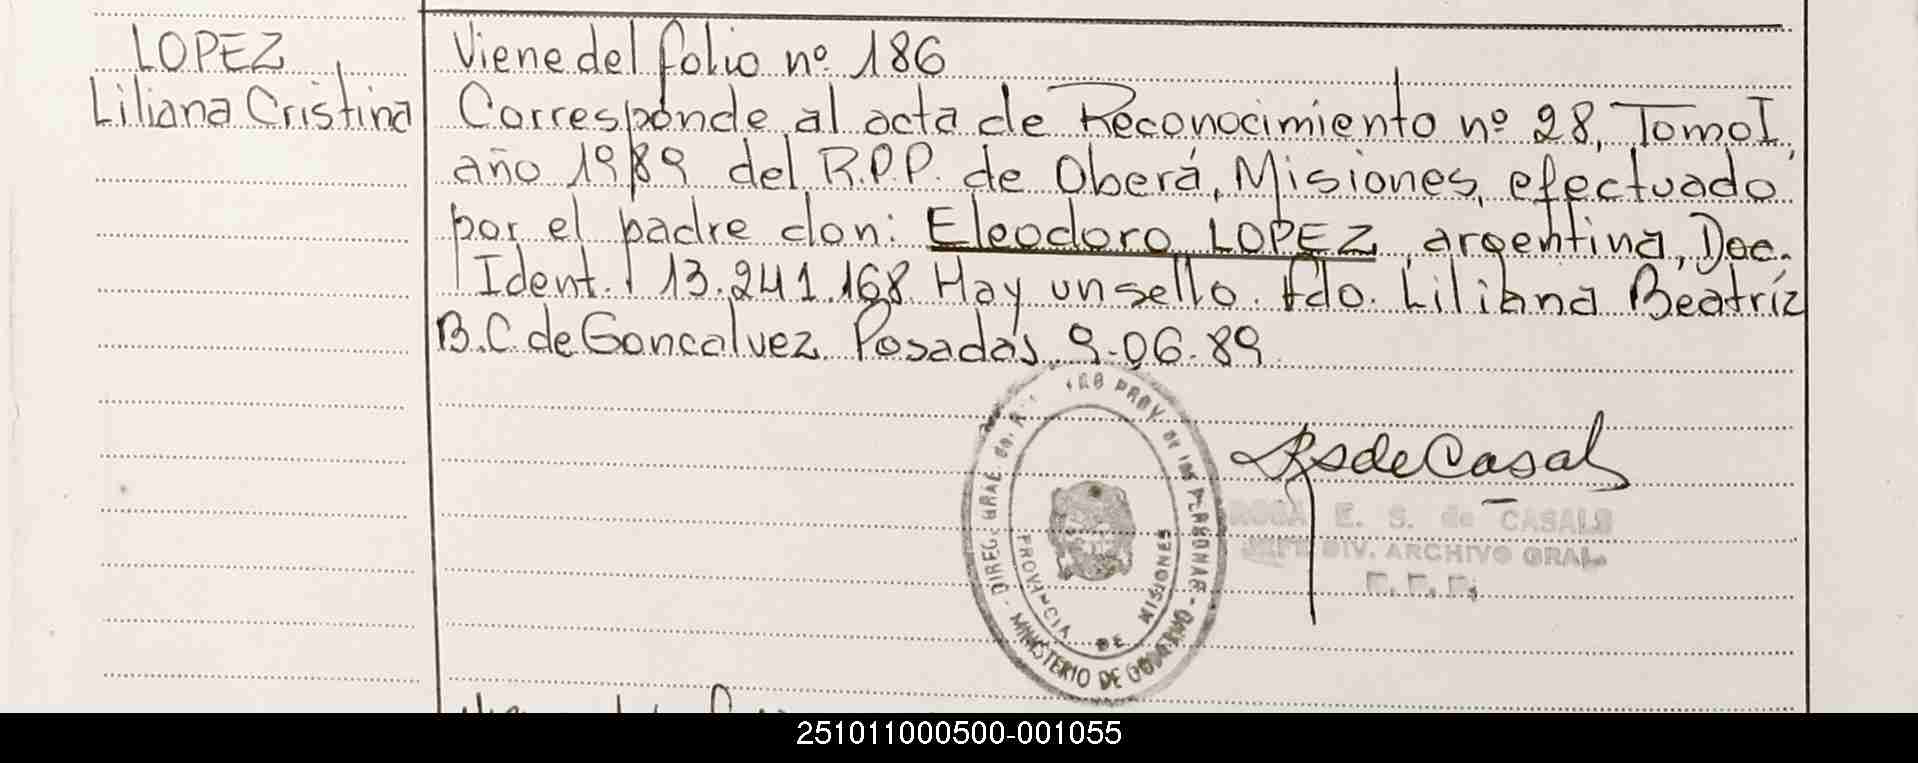 LOPEZ
Liliana Cristina
Viene del folio nº 186
Corresponde al acta de Reconocimiento nº 28, Tomo I,
año 1989 del R.P.P. de Oberá, Misiones, efectuado
por el padre don: Eleodoro LOPEZ, argentina, Doc.
Ident. 13.241.168. Hay un sello. fdo. Liliana Beatríz
B.C. de Goncalvez Posadas 9-06-89
DIREC. GRAL. PROV. DE LAS PERSONAS - MINISTERIO DE GOBIERNO -
PROVINCIA DE MISIONES
RS de Casals
ROSA E. S. de CASALS
JEFE DIV. ARCHIVO GRAL.
251011000500-001055